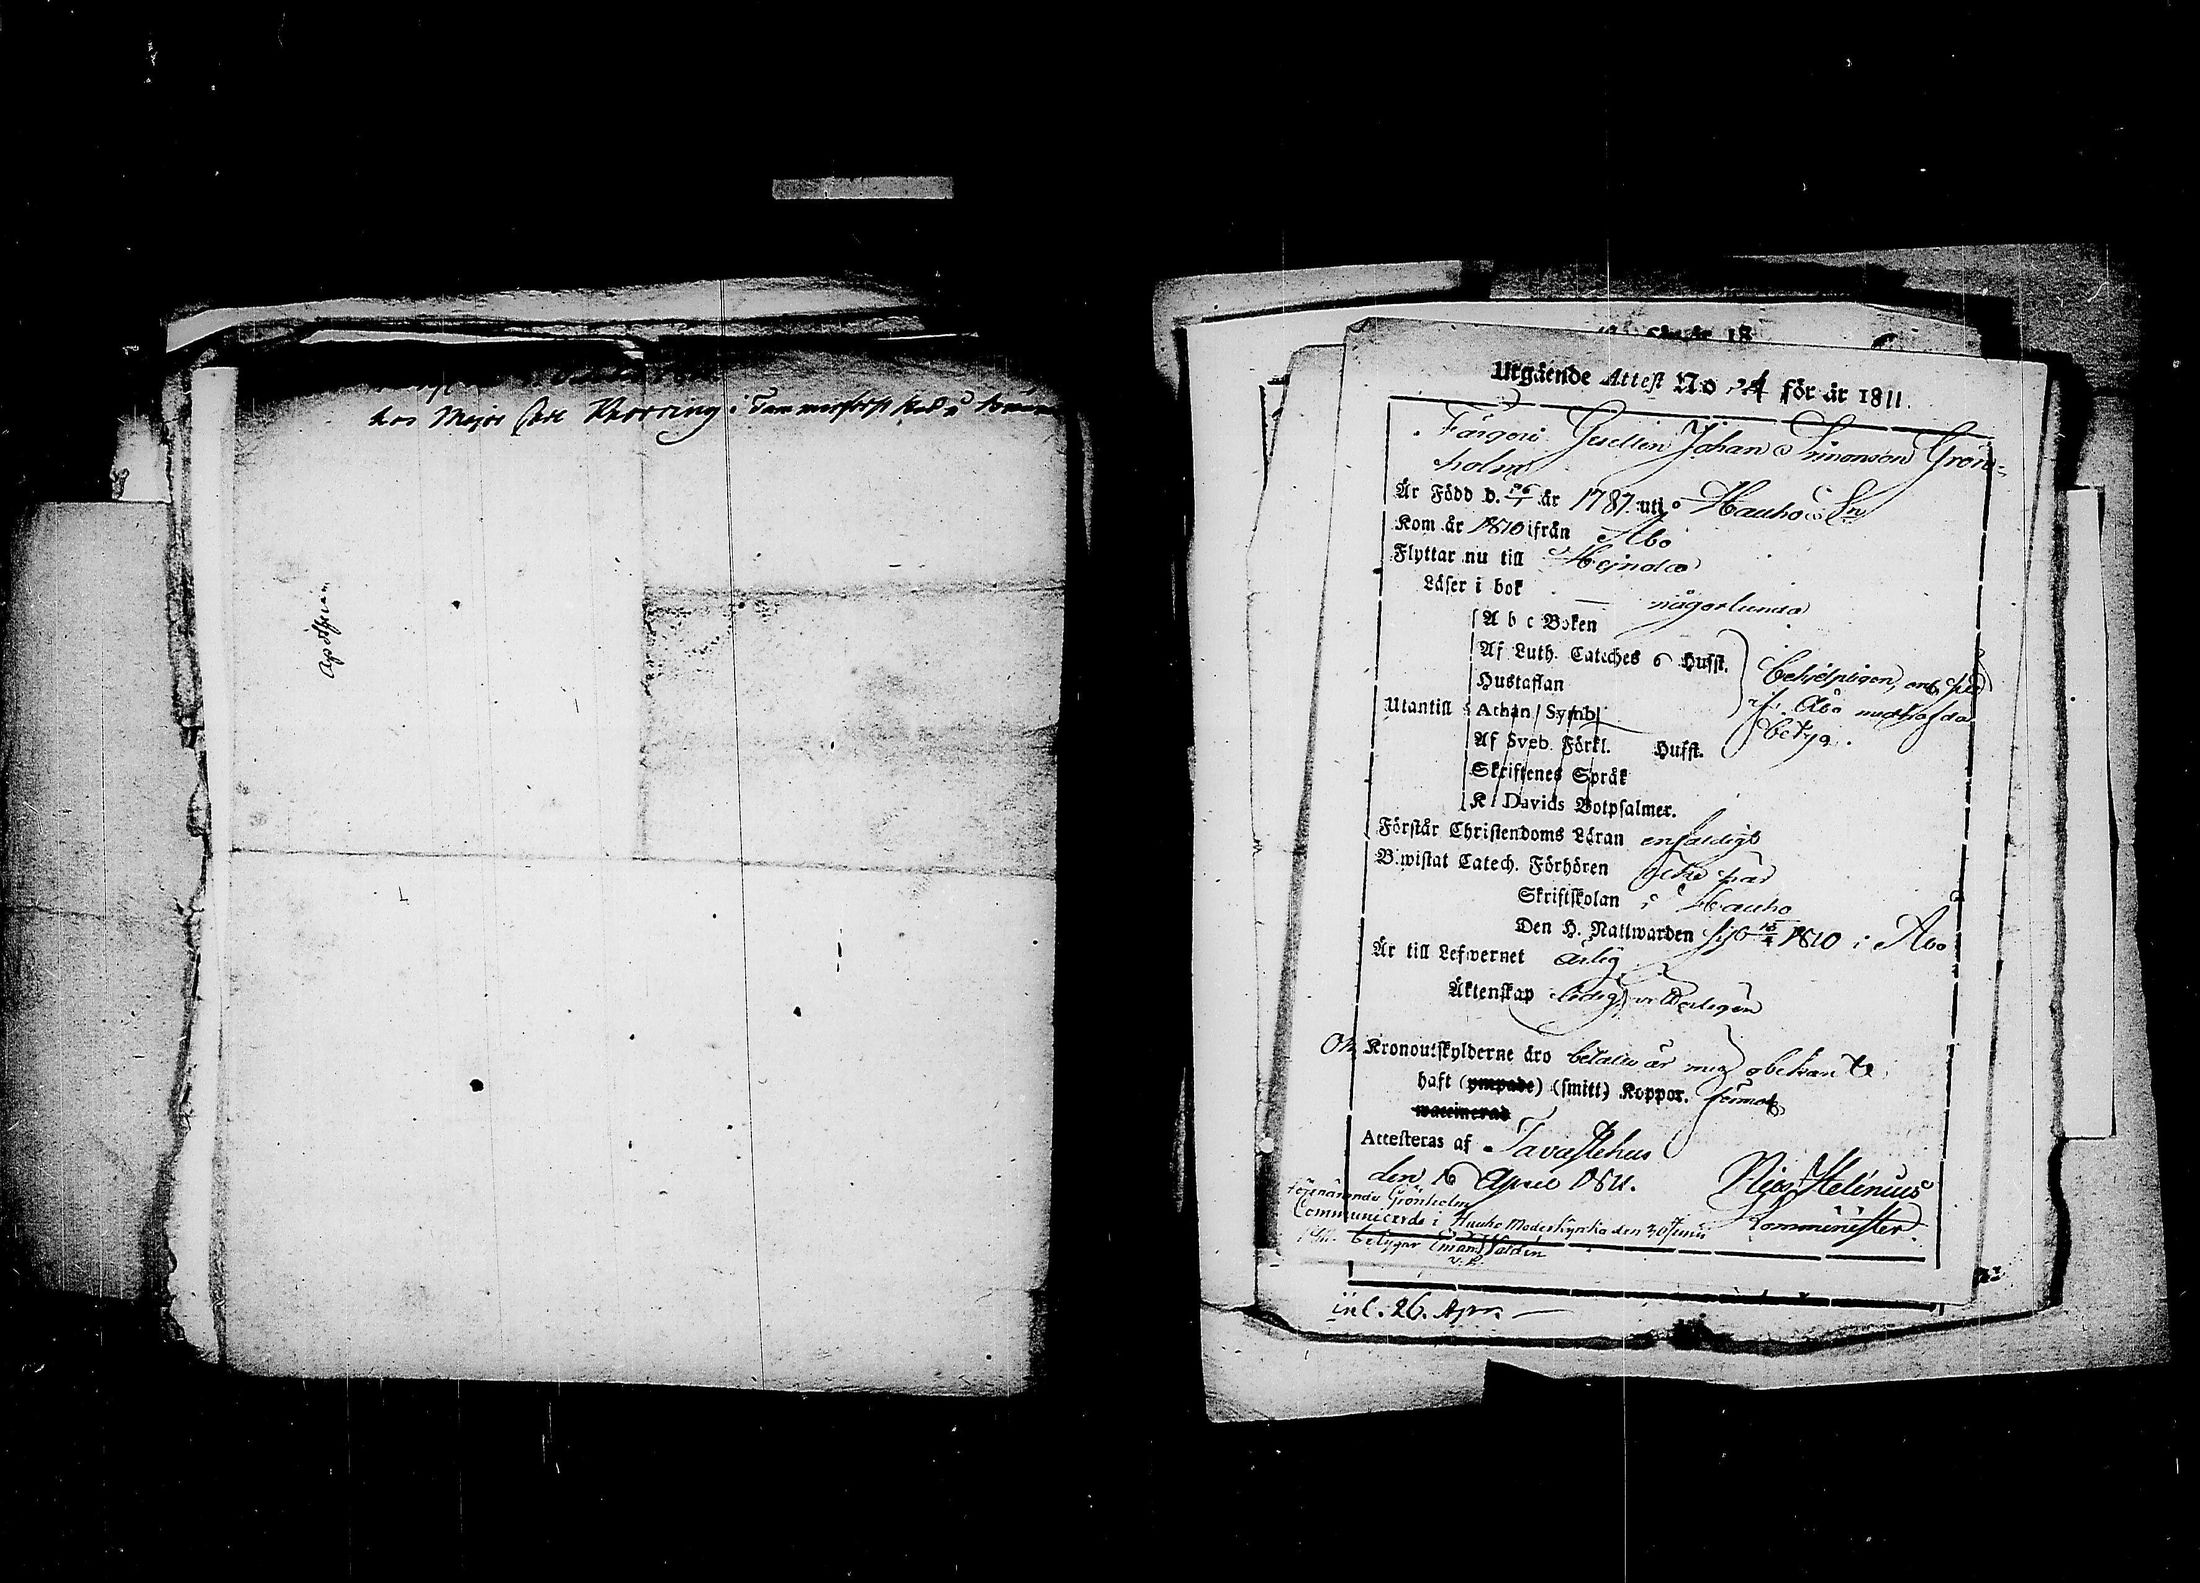 hos Major Carl Knorring i
Utgående Attest No 24 för år 1811.
Färgeri Gesellen Johan Simonson Grön-
holm
Är Född d. 26 år 1787 uti Hauho Sn
Kom år 1810 ifrån Åbo
Flyttar nu till Hejnola
Läser i bok — någorlunda
A b c Boken
Af Luth. Cateches 6 Hufst.
Hustaflan
behjelpligen, enl.
Utantill Athan. Symb.
if. Åbo medhafda
betyg.
Af Sveb. Förkl. Hufst.
Skriftenes Språk
K. Davids Botpsalmer.
Förstår Christendoms Läran enfaldigt
Biwistat Catech. Förhören icke här
Skriftskolan i Hauho
Den H. Nattwarden sist 1810 i Åbo
Är till Lefwernet ärlig
Äktenskap ledig
Om Kronoutskylderne äro betalte är mig obekant
haft (ympade) (smitt) Koppor.
waccinerad
Attesteras af Tavastehus
den 16 April 1811. Helenius
Komminister.
förenämnde Grönholm
Communicerde i Hauho Moderkyrka den 30 Junii
1811. betygar Eman. Walden
v. p.
inl. 26. Apr. —